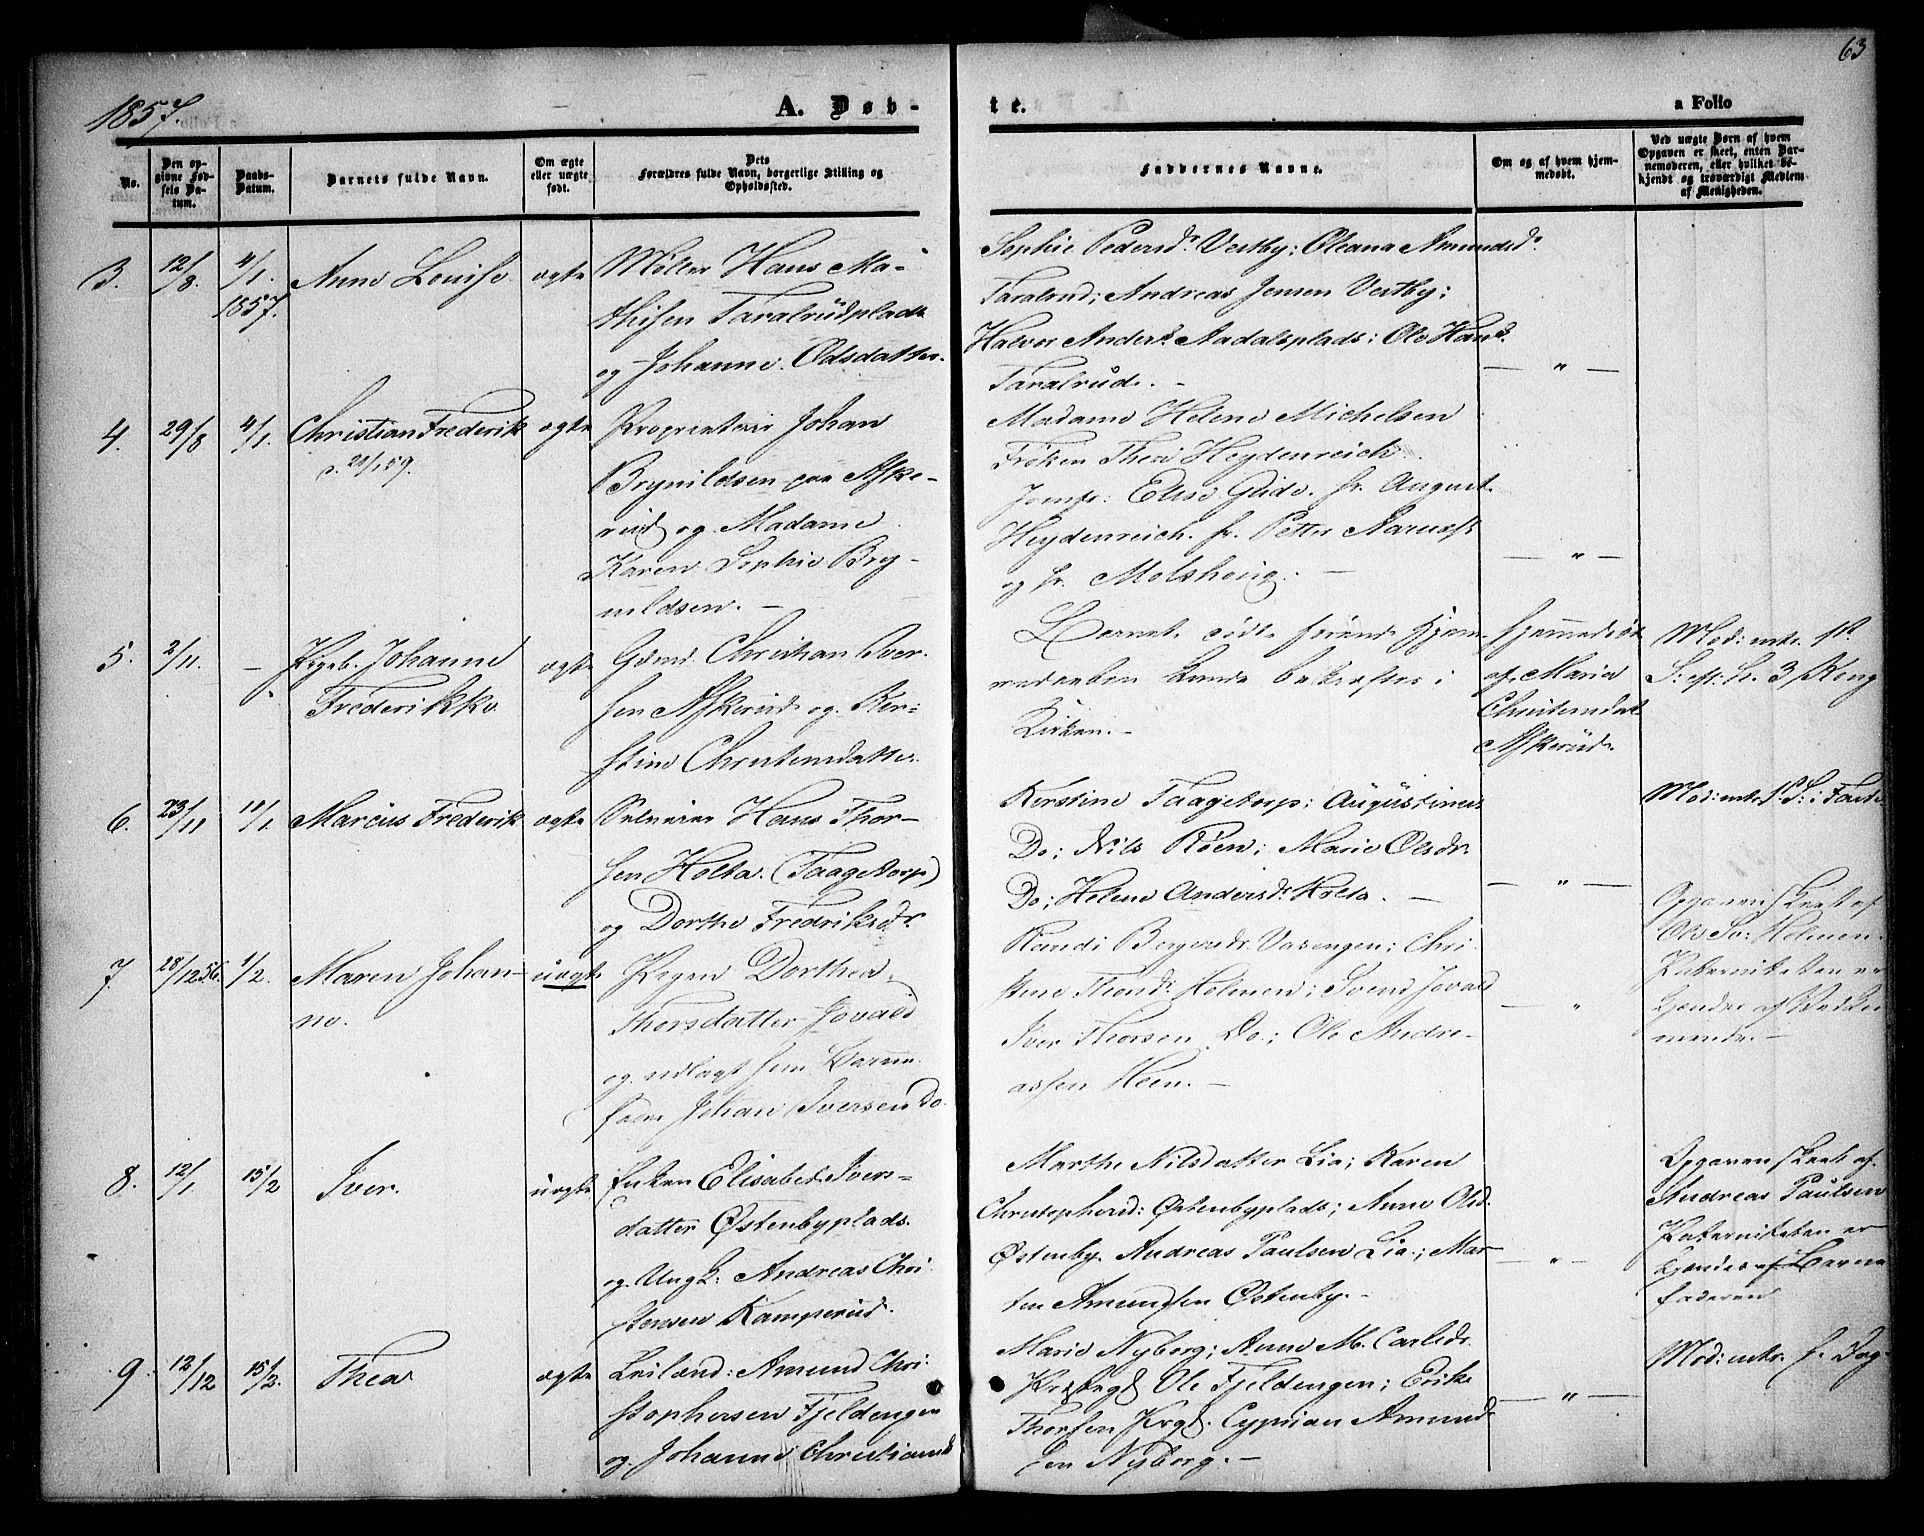 63
1857.
A. Døb-
te.
a Folio
No.
Den op-
givne Fød-
sels Da-
tum.
Daabs-
Datum.
Barnets fulde Navn.
Om ægte
eller uægte
født.
Dets
Forældres fulde Navn, borgerlige Stilling og
Opholdssted.
Faddernes Navne.
Om og af hvem hjem-
medøbt.
Ved uægte Børn af hvem
Opgaven er skeet, enten Bar-
nemoderen, eller hvilket be-
kjendt og troværdigt Medlem
af Menigheden.
3.
12/8.
4/1.
1857.
Anne Louise
ægte
Møller Hans Ma-
thisen Taralrudplads
og Johanne Odsdatter.
Sophie Pedersdr Vestby; Oleana Amundsdr
Taralrud; Andreas Jensen Vestby;
Halvor Anders. Aadalsplads; Ole Hans.
Taralrud. -
— " —
4.
29/8
4/1.
Christian Frederik
d. 28/1 59.
ægte
Proprietair Johan
Brynildsen paa Aske-
rud og Madame
Karen Sophie Bry-
nildsen. —
Madame Helene Michelsen
Frøken Thea Heydenreich
Jomfr: Elise Gude. Hr. August
Heydenreich. Hr. Petter
og Hr. —
— " —
5.
2/11.
—
Pigeb. Johanne
Frederikke
ægte
Gaardmd. Christian Iver-
sen Askerud og Ker-
stine Christensdatter.
Barnet døde førend Hjem-
medaaben kunde bekræftes i
Kirken. -
Hjemmedøbt
af Maria
Christensdatt.
Askerud.
Mod: intr. 1st
S. eft. H. 3 Kong
6.
23/11
11/1
Marcus Frederik
ægte
Selveier Hans Thor-
sen Holta. (Taagetorp)
og Dorthe Fredriksdr.
Kerstine Taagetorp; Augustinus
Do; Nils Røen; Marie Olsdr.
Do; Helene Andersdr Holta. —
— " —
Mod: intr. S: i Faste
7.
28/12 56.
1/2.
Maren Johan-
ne.
uægte
Pigen Dorthea
Thorsdatter Jovald
og udlagt som Barne-
fader Johan Iversen Do.
Randi Vasengen; Chri-
stine Thorsdr Holmen; Svend Jovald
Iver Thorsen Do; Ole Andre-
assen Heen. —
— " —
Opgaven skeet af
Ole Holmen.
Paterniteten er
kjendt af
mende. -
8.
12/1.
15/2
Iver.
uægte
Enken Elisabeth Ivers-
datter Østenbyplads.
og Ungk: Andreas Chri-
stensen Kamperud.
Marthe Nilsdatter Lia; Karen
Christophersd: Østenbyplads; Anne Olsd.
Østenby. Andreas Paulsen Lia; Mar-
ten Amundsen Østenby. -
— " —
Opgaven skeet af
Andreas Paulsen
Paterniteten er
kjendt af Barne
faderen
9.
12/12
15/2.
Thea
ægte
Leilænd: Amund Chri-
stophersen Fjeldengen
og Johanne Christiansd
Marie Nyborg; Anne M. Carlsdr.
Ole Fjeldengen; Erik
Thorsen Cyprian Amund-
sen Nyborg. —
— " —
Mod: intr.